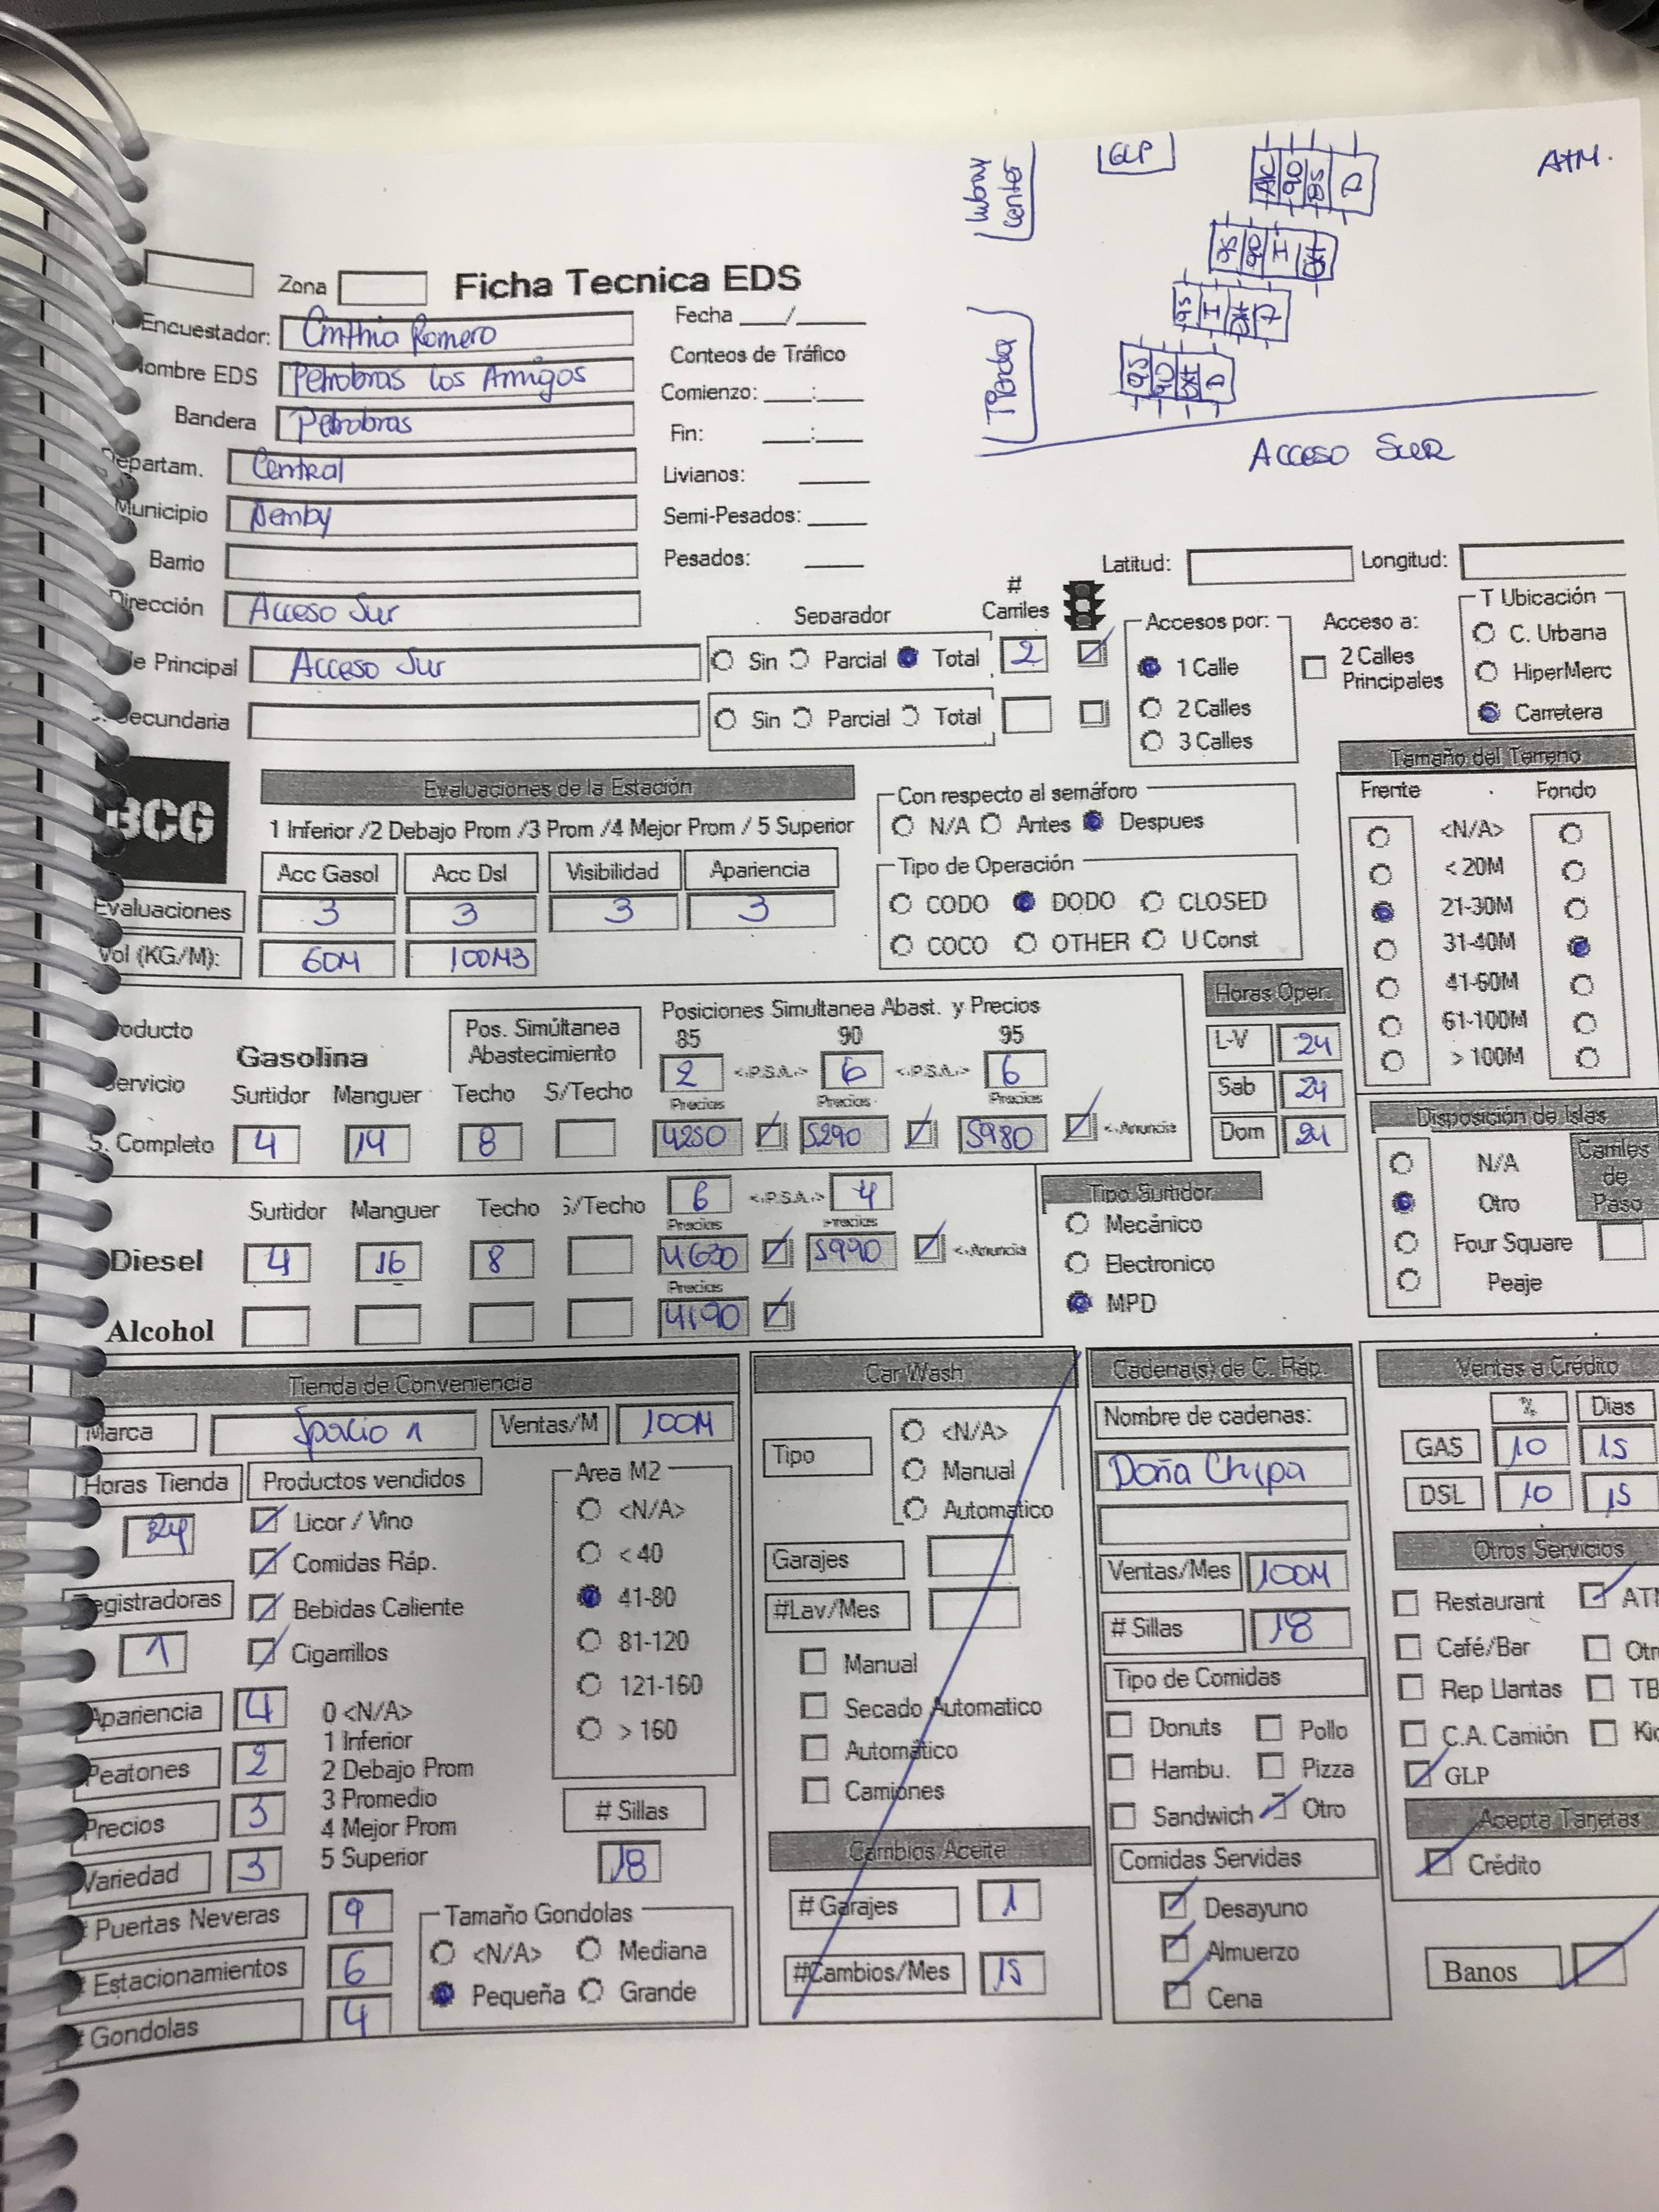 GLP
ATM.
Lubay Center
A/C 90 85 D
Tienda
ACCESO SUR
Zona
Ficha Tecnica EDS
Encuestador: Cinthia Romero
Fecha ___/____
Nombre EDS Petrobras Los Amigos
Conteos de Tráfico
Bandera Petrobras
Comienzo: ___:___
Departam. Central
Fin: ___:___
Municipio Ñemby
Livianos: ____
Barrio
Semi-Pesados: ____
Dirección Acceso Sur
Pesados: ____
Latitud: Longitud:
Separador # Carriles
Accesos por: Acceso a: T Ubicación
C. Urbana
Principal Acceso Sur Sin Parcial Total 2 1 Calle 2 Calles Principales HiperMerc
Secundaria Sin Parcial Total 2 Calles Carretera
3 Calles
BCG
Evaluaciones de la Estación
1 Inferior /2 Debajo Prom /3 Prom /4 Mejor Prom / 5 Superior
Acc Gasol Acc Dsl Visibilidad Apariencia
Evaluaciones 3 3 3 3
Vol (KG/M): 60M 100M3
Con respecto al semáforo
N/A Antes Despues
Tipo de Operación
CODO DODO CLOSED
COCO OTHER U Const
Tamaño del Terreno
Frente . Fondo
<N/A>
< 20M
21-30M
31-40M
41-60M
61-100M
> 100M
Producto
Servicio
Gasolina
Pos. Simúltanea Abastecimiento
Posiciones Simultanea Abast. y Precios
85 90 95
2 <.P.S.A.> 6 <.P.S.A.> 6
Surtidor Manguer Techo S/Techo Precios Precios Precios
S. Completo 4 14 8 4250 5290 5980 <-Anuncia
Horas Oper.
L-V 24
Sab 24
Dom 24
Disposición de Islas
N/A
Otro
Four Square
Peaje
Carriles de Paso
6 <.P.S.A.> 4
Surtidor Manguer Techo S/Techo Precios Precios
Diesel 4 16 8 4630 5990 <-Anuncia
Precios
Alcohol 4190
Tipo Surtidor
Mecánico
Electronico
MPD
Tienda de Conveniencia
Marca Spacio 1 Ventas/M 100M
Horas Tienda Productos vendidos
24
Licor / Vino
Comidas Ráp.
Bebidas Caliente
Cigarrillos
Registradoras
1
Area M2
<N/A>
< 40
41-80
81-120
121-160
> 160
Apariencia 4
Peatones 2
Precios 3
Variedad 3
0 <N/A>
1 Inferior
2 Debajo Prom
3 Promedio
4 Mejor Prom
5 Superior
# Sillas
18
# Puertas Neveras 9
# Estacionamientos 6
# Gondolas 4
Tamaño Gondolas
<N/A> Mediana
Pequeña Grande
Car Wash
Tipo
<N/A>
Manual
Automatico
Garajes
#Lav/Mes
Manual
Secado Automatico
Automático
Camiones
Cambios Aceite
# Garajes 1
#Cambios/Mes 15
Cadena(s) de C. Ráp.
Nombre de cadenas:
Doña Chipa
Ventas/Mes 100M
# Sillas 18
Tipo de Comidas
Donuts Pollo
Hambu. Pizza
Sandwich Otro
Comidas Servidas
Desayuno
Almuerzo
Cena
Ventas a Crédito
% Dias
GAS 10 15
DSL 10 15
Otros Servicios
Restaurant
Café/Bar
Rep Llantas
C.A. Camión
GLP
Acepta Tarjetas
Crédito
Banos